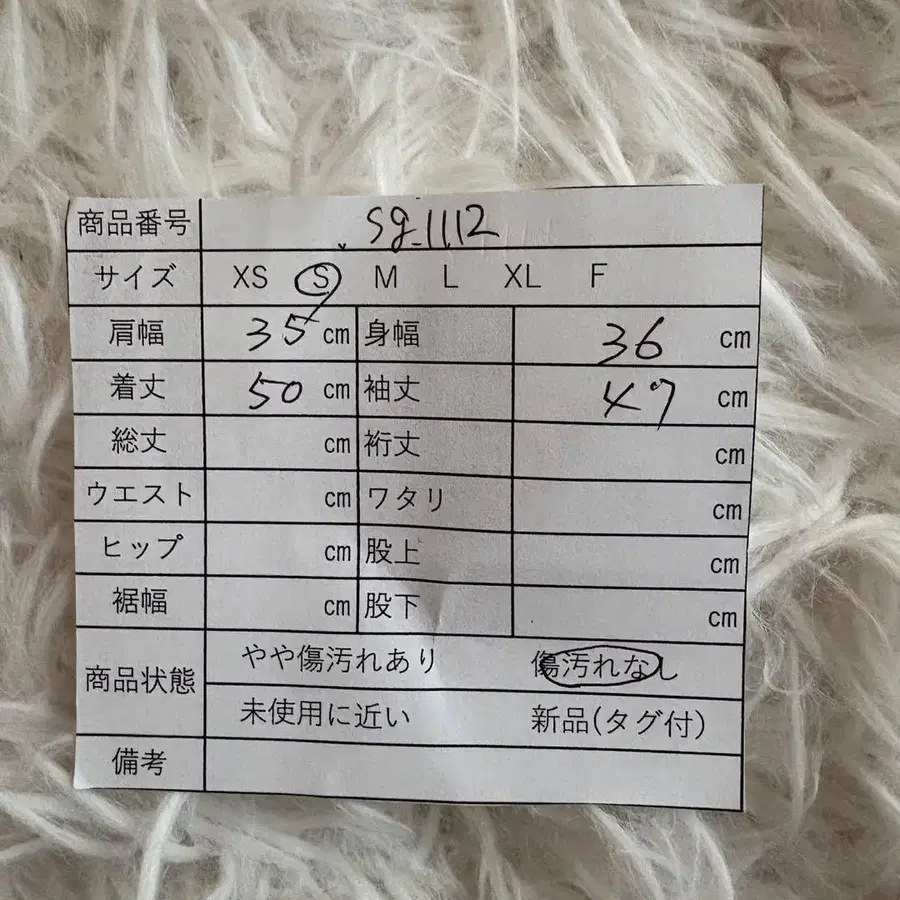 商品番号 sg_1112
サイズ XS S M L XL F
肩幅 35 cm 身幅 36 cm
着丈 50 cm 袖丈 47 cm
総丈 cm 裄丈 cm
ウエスト cm ワタリ cm
ヒップ cm 股上 cm
裾幅 cm 股下 cm
商品状態 やや傷汚れあり 傷汚れなし
未使用に近い 新品(タグ付)
備考